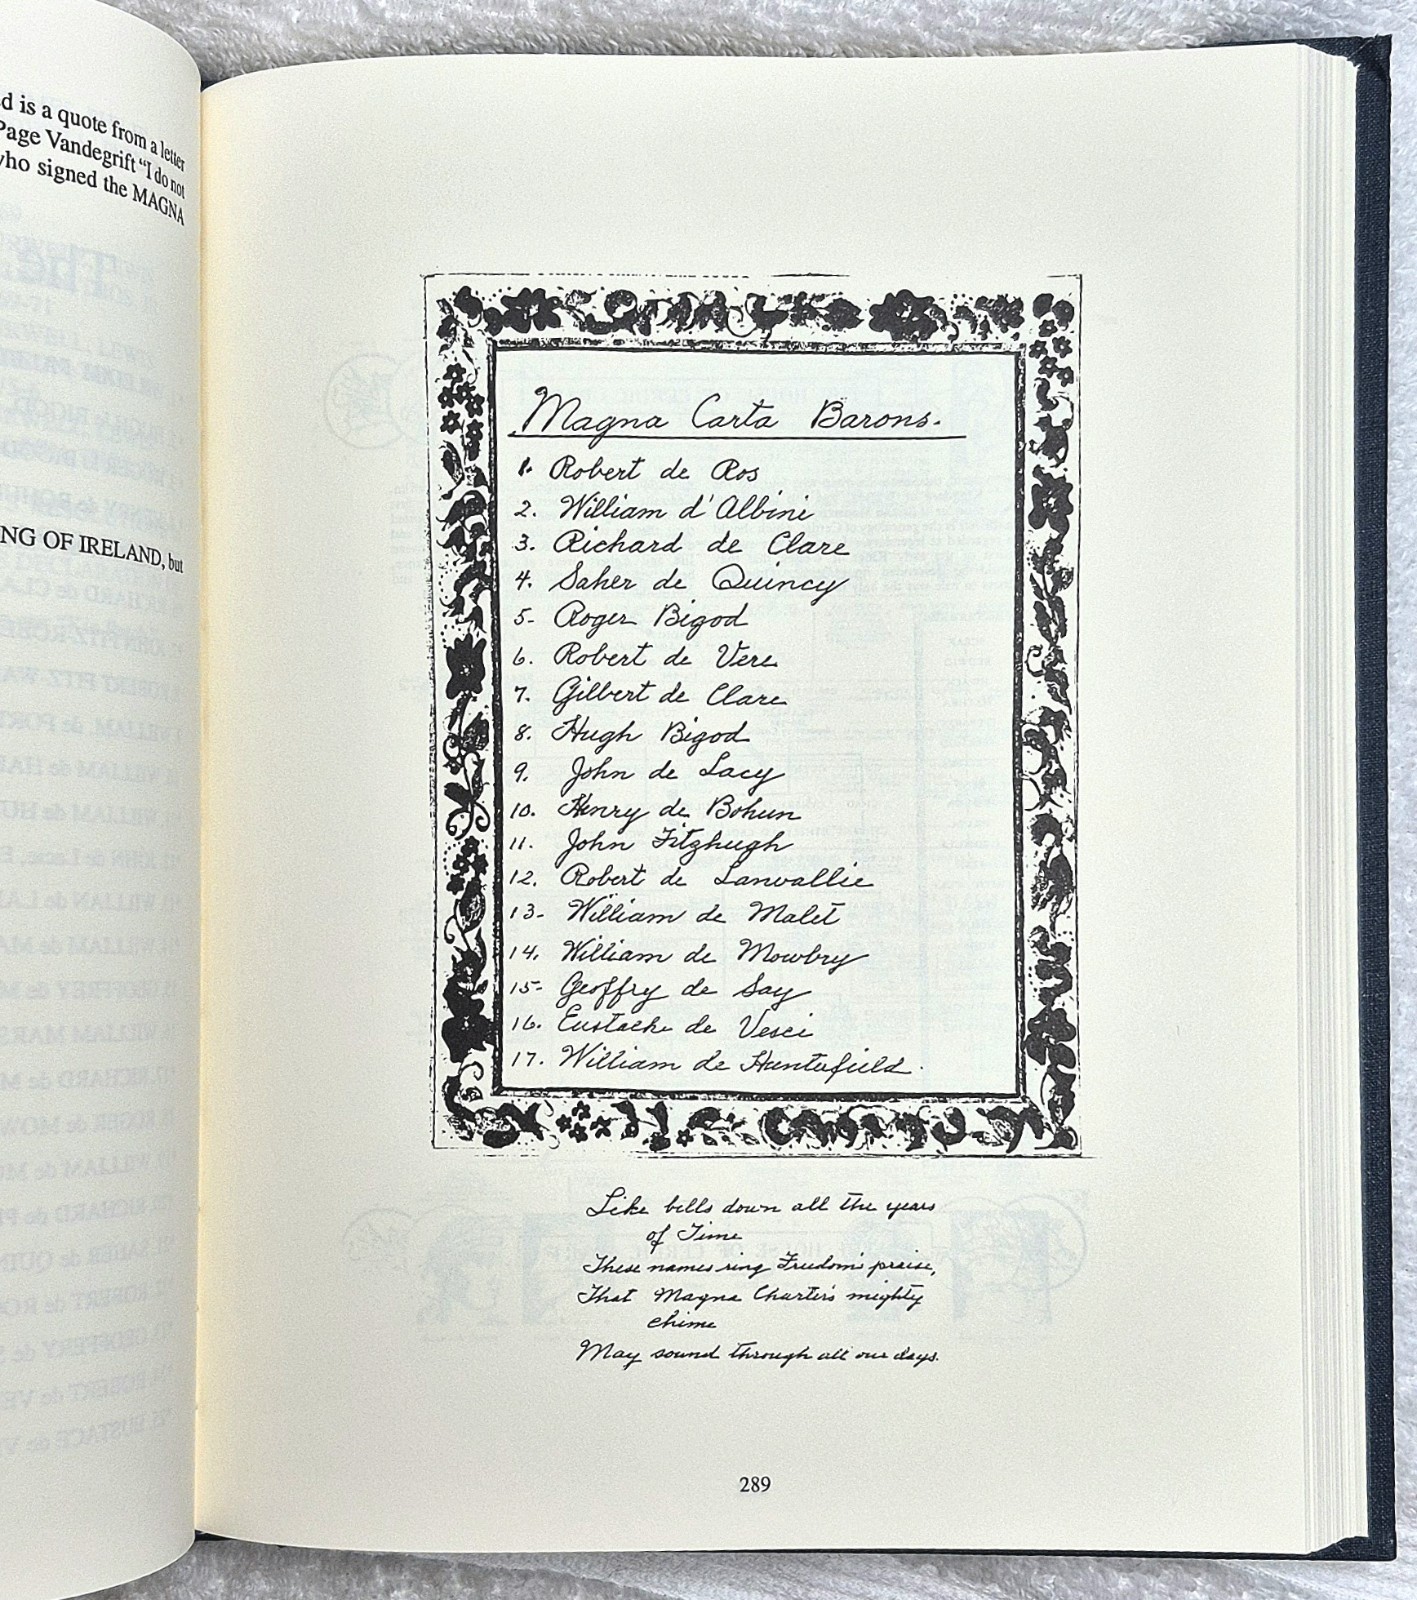 d is a quote from a letter
Page Vandegrift "I do not
who signed the MAGNA
NG OF IRELAND, but
Magna Carta Barons.
1. Robert de Ros
2. William d'Albini
3. Richard de Clare
4. Saher de Quincy
5- Roger Bigod
6. Robert de Vere
7. Gilbert de Clare
8. Hugh Bigod
9. John de Lacy
10. Henry de Bohun
11. John Fitzhugh
12. Robert de Lanvallie
13- William de Malet
14. William de Mowbry
15- Geoffry de Say
16. Eustache de Vesci
17. William de Huntefield.
Like bells down all the years
of Time
These names ring Freedom's praise,
That Magna Charter's mighty
chime
May sound through all our days.
289